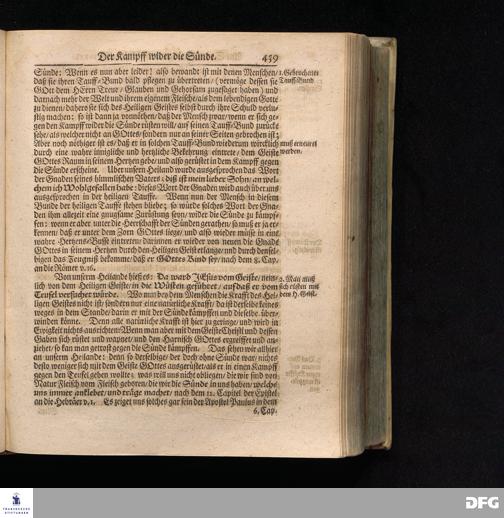 Der Kampff wider die Sünde. 439
Sünde: Wenn es nun aber leider! also bewandt ist mit denen Menschen/ 1. Gebrochener
daß sie ihren Tauff-Bund bald pflegen zu übertreten/ (vermöge dessen sie Tauff-Bund
GOtt dem HErrn Treue/ Glauben und Gehorsam zugesaget haben) und
darnach mehr der Welt und ihrem eigenem Fleische/ als dem lebendigen Gotte
zu dienen/ dahero sie sich des Heiligen Geistes selbst durch ihre Schuld verlu-
stig machen: so ist dann ja vonnöthen/ daß der Mensch zwar/ wenn er sich ge-
gen den Kampff wider die Sünde rüsten will/ auf seinen Tauff-Bund zurücke
sehe/ als welcher nicht an GOttes/ sondern nur an seiner Seiten gebrochen ist;
Aber noch nöthiger ist es/ daß er in solchen Tauff-Bund wiederum würcklich muß erneuret
durch eine wahre innigliche und hertzliche Bekehrung eintrete/ dem Geiste werden.
GOttes Raum in seinem Hertzen gebe/ und also gerüstet in dem Kampff gegen
die Sünde erscheine. Uber unsern Heiland wurde ausgesprochen das Wort
der Gnaden seines himmlischen Vaters: diß ist mein lieber Sohn/ an wel-
chem ich Wohlgefallen habe: dieses Wort der Gnaden wird auch über uns
ausgesprochen in der heiligen Tauffe. Wenn nun der Mensch in diesem
Bunde der heiligen Tauffe stehen bliebe; so würde solches Wort der Gna-
den ihm allezeit eine gnugsame Zurüstung seyn/ wider die Sünde zu kämpf-
fen: wenn er aber unter die Herrschafft der Sünden gerathen/ so muß er ja er-
kennen/ daß er unter dem Zorn GOttes liege/ und also wieder müsse in eine
wahre Hertzens-Busse eintreten/ darinnen er wieder von neuen die Gnade
GOttes in seinem Hertzen durch den Heiligen Geist erlange/ und durch densel-
bigen das Zeugniß bekomme/ daß er GOttes Kind sey/ nach dem 8. Cap.
an die Römer v. 16.
Von unserm Heilande hieß es: Da ward JEsus vom Geiste/ nem- 2. Man muß
lich von dem Heiligen Geiste/ in die Wüsten geführet/ aufdaß er vom sich rüsten mit
Teufel versuchet würde. Wo nun bey dem Menschen die Krafft des Hei- dem H. Geist.
ligen Geistes nicht ist/ sondern nur eine natürliche Krafft/ da ist derselbe keines
weges in dem Stande/ darin er mit der Sünde kämpffen und dieselbe über-
winden könne. Denn alle natürliche Krafft ist hier zu geringe/ und wird in
Ewigkeit nichts ausrichten: Wenn man aber mit dem Geiste Christi und dessen
Gaben sich rüstet und wapnet/ und den Harnisch GOttes ergreiffet und an-
ziehet/ so kan man getrost gegen die Sünde kämpffen. Das sehen wir allhier
an unserm Heilande: denn so derselbige/ der doch ohne Sünde war/ nichts
desto weniger sich mit dem Geiste GOttes ausgerüstet/ als er in einen Kampff
gegen den Teufel gehen wollte; was will uns nicht obliegen/ die wir sind von
Natur Fleisch vom Fleisch geboren/ die wir die Sünde in uns haben/ welche
uns immer anklebet/ und träge machet/ nach dem 12. Capitel der Epistel
an die Hebräer v. 1. Es zeiget uns solches gar fein der Apostel Paulus in dem
6. Cap.
FRANCKESCHE
STIFTUNGEN
DFG